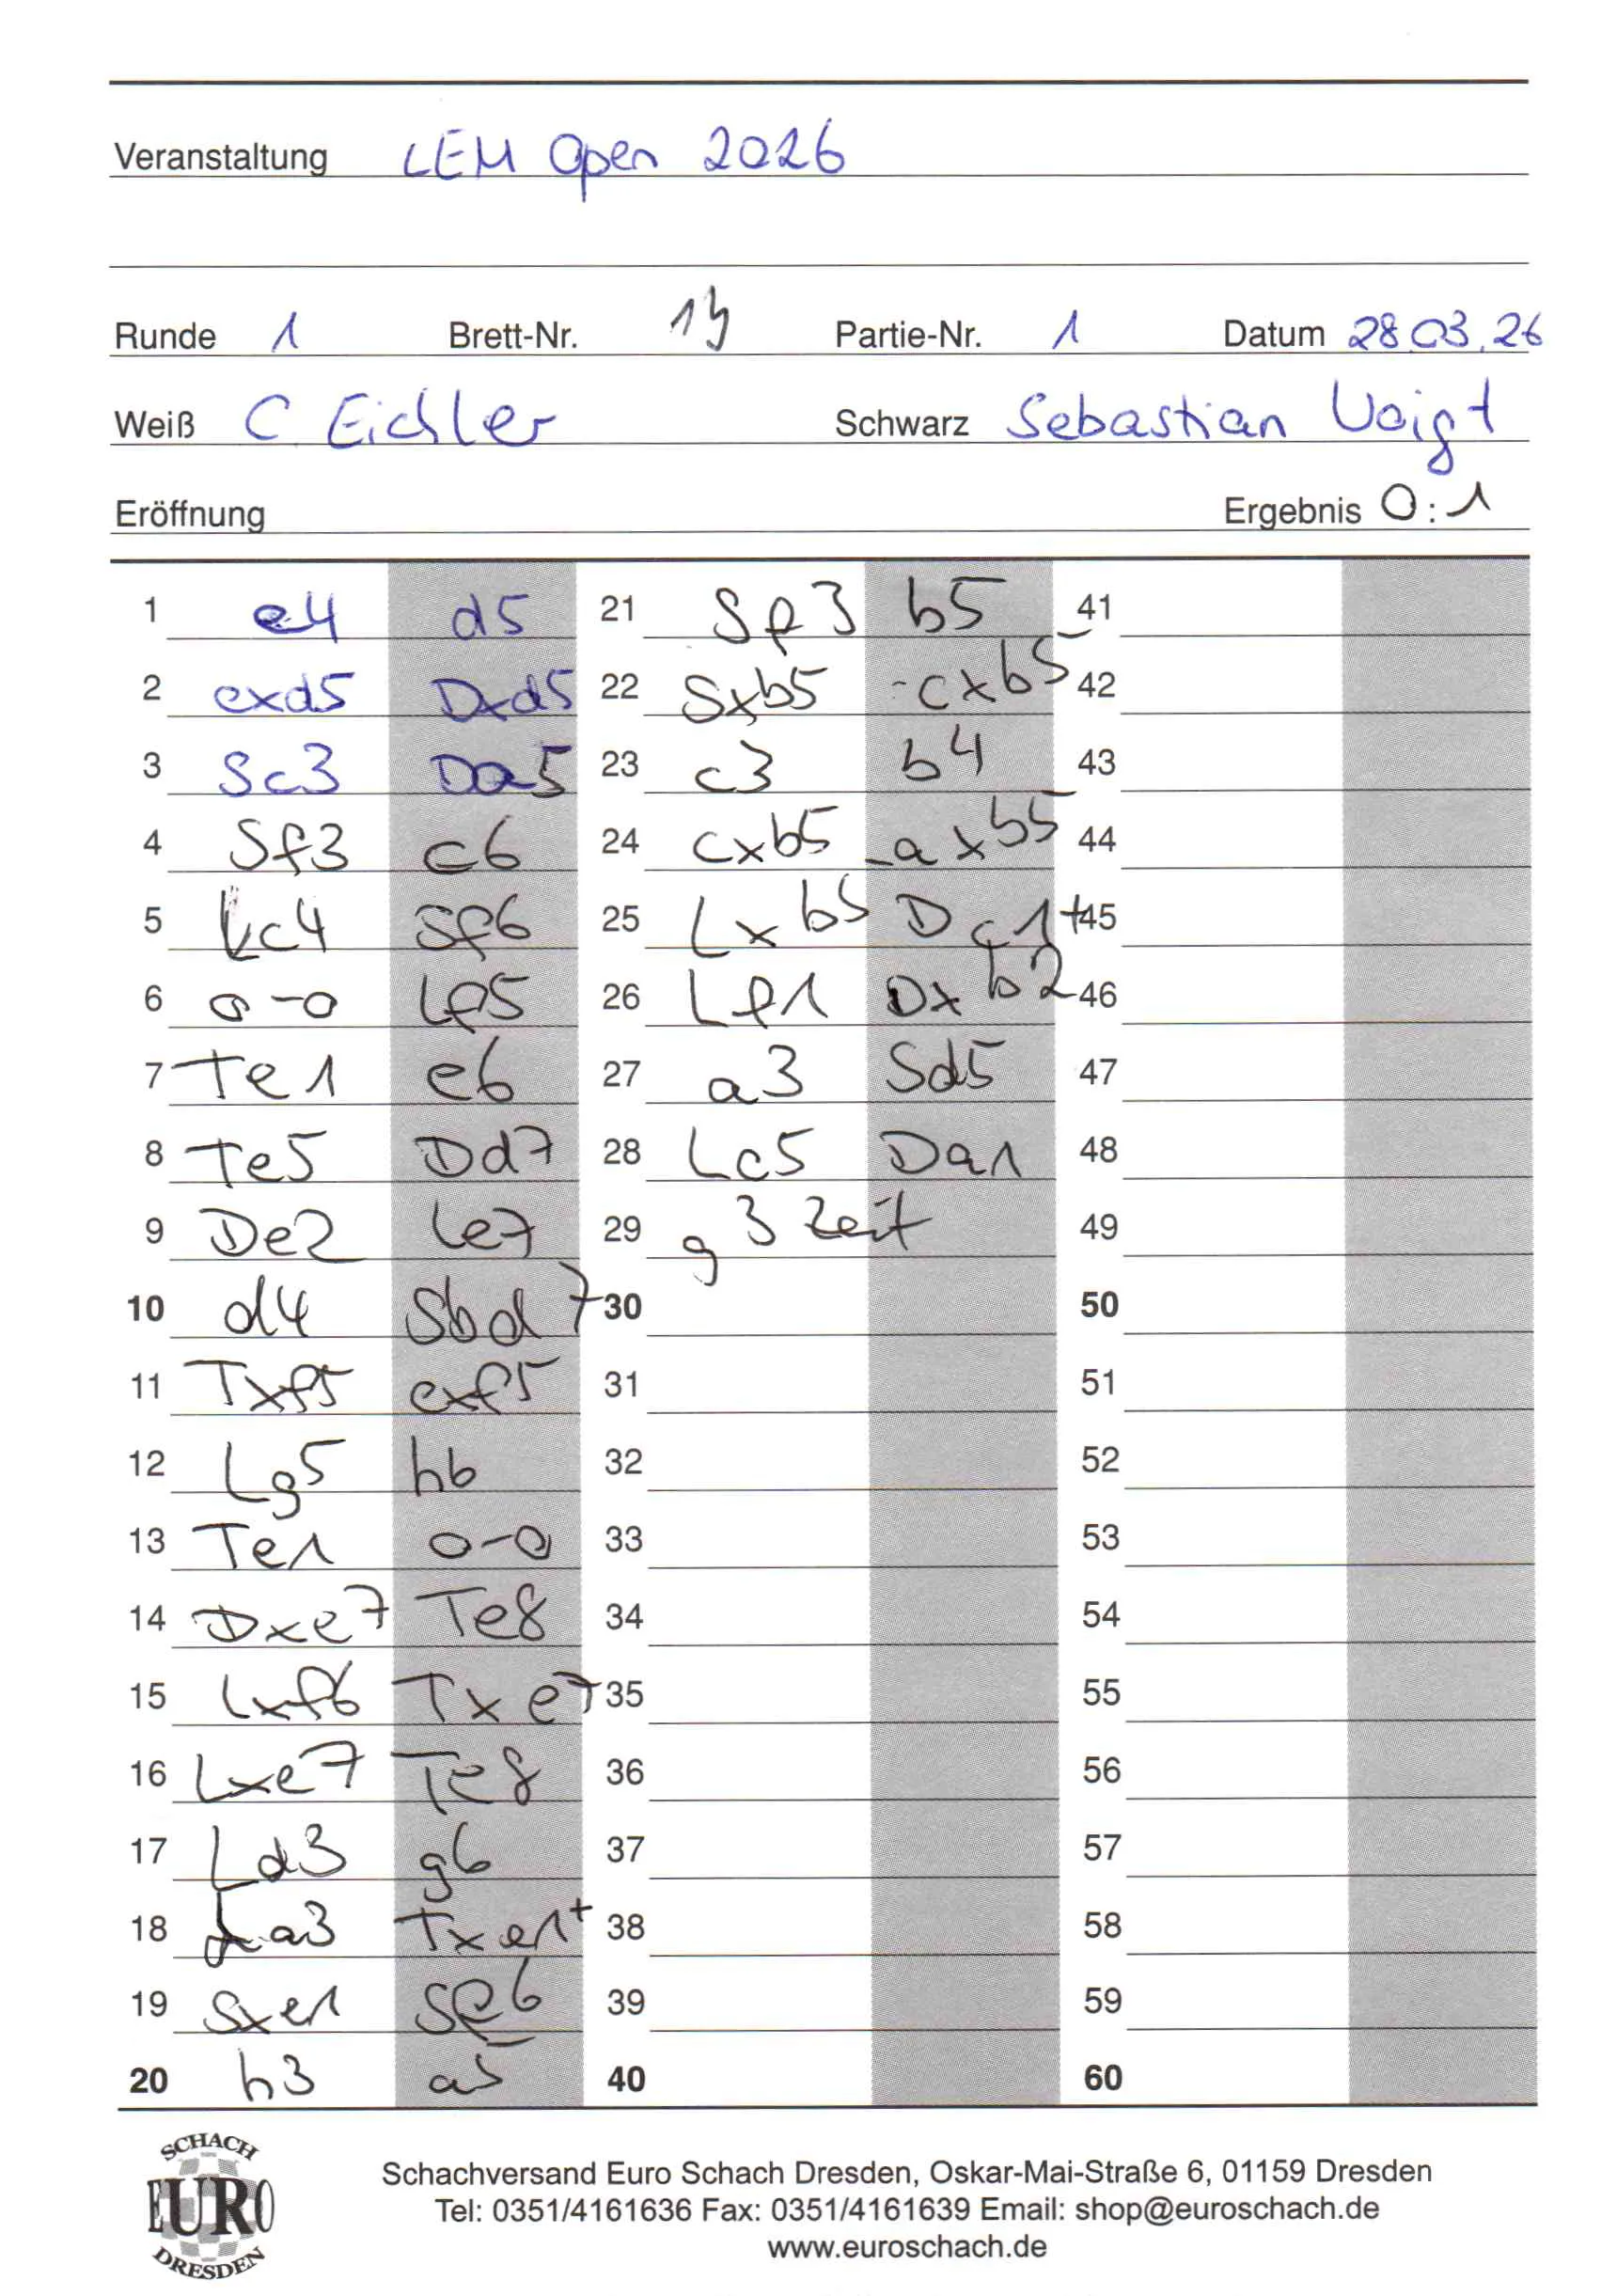 Veranstaltung LEM Open 2026
Runde 1 Brett-Nr. Partie-Nr. 1 Datum 28.03.26
Weiß C Eichler Schwarz Sebastian Voigt
Eröffnung Ergebnis 0:1
1 e4 d5
2 exd5 Dxd5
3 Sc3 Da5
4 Sf3 c6
5 Lc4 Sf6
6 0-0 Lf5
7 Te1 e6
8 Te5 Dd7
9 De2 Le7
10 d4 Sbd7
11 Txf5 exf5
12 Lg5 h6
13 Te1 0-0
14 Dxe7 Te8
15 Lxf6 Txe7
16 Lxe7 Te8
17 Ld3 g6
18 La3 Txe1+
19 Sxe1 Sf6
20 h3 a5
21 Sf3 b5
22 Sxb5 -cxb5
23 c3 b4
24 cxb5 -axb5
25 Lxb5 Dc1+
26 Lf1 Dxb2
27 a3 Sd5
28 Lc5 Da1
29 g3 Zeit
30
31
32
33
34
35
36
37
38
39
40
41
42
43
44
45
46
47
48
49
50
51
52
53
54
55
56
57
58
59
60
SCHACH
EURO
DRESDEN
Schachversand Euro Schach Dresden, Oskar-Mai-Straße 6, 01159 Dresden
Tel: 0351/4161636 Fax: 0351/4161639 Email: shop@euroschach.de
www.euroschach.de